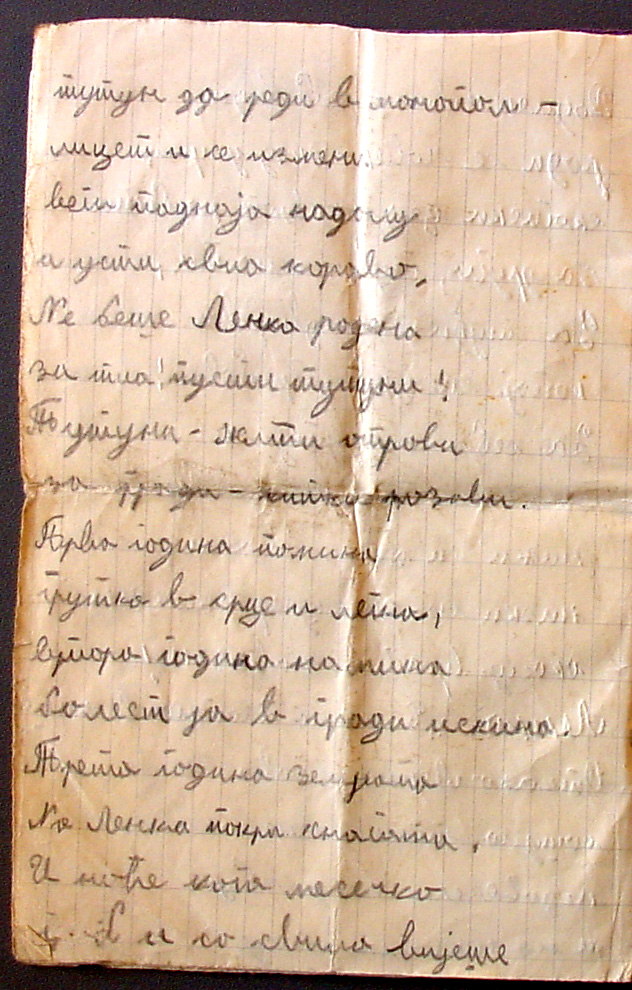 тутун да реди в монопол -
лицет и се измени
веѓи паднаја надолу
и усти свиа кораво,
Не беше Ленка родена
за тиа пусти тутуни!
Тутуни - жлти отрови
за гради - китки розови.
Прва година помина
грутка в срце и легна,
втора година намина
болест ја в гради искина.
Трета година земјата
На Ленка покри снагата.
И ноће кога месечко
и со свила вијеше